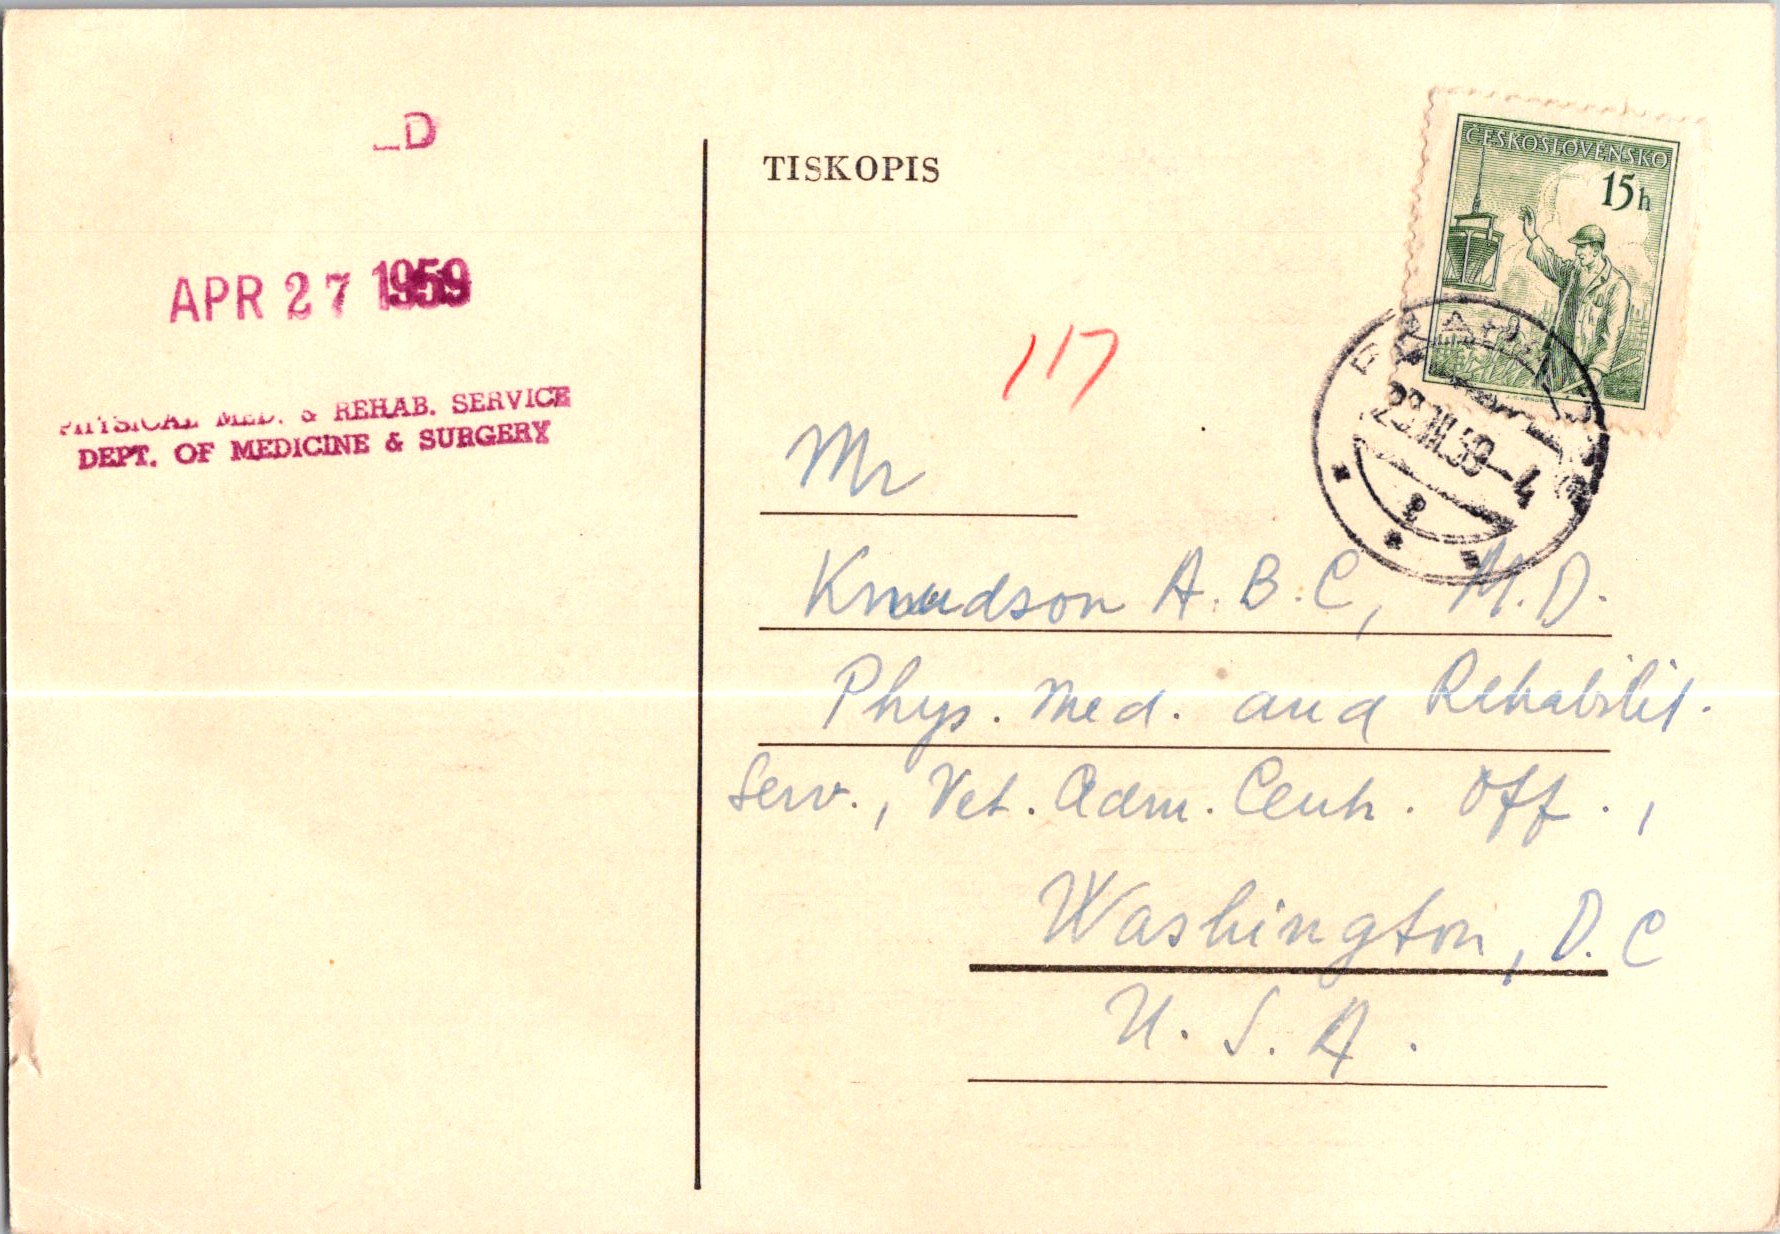 D
APR 27 1959
PHYSICAL MED. & REHAB. SERVICE
DEPT. OF MEDICINE & SURGERY
TISKOPIS
ČESKOSLOVENSKO
15h
117
Mr
Knudson A. B. C, M. D.
Phys. Med. and Rehabilit.
Serv., Vet. Adm. Centr. Off.,
Washington, D. C
U. S. A.